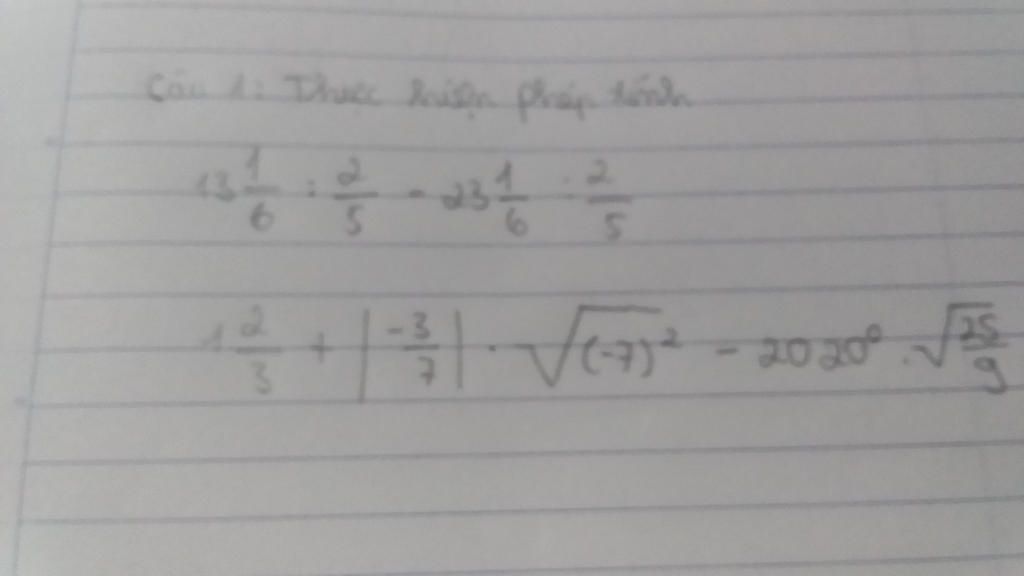 Câu 1: Thực hiện phép tính
13 1/6 : 2/5 - 23 1/6 : 2/5
1 2/3 + |-3/7| . √(-7)² - 2020⁰ . √25/9